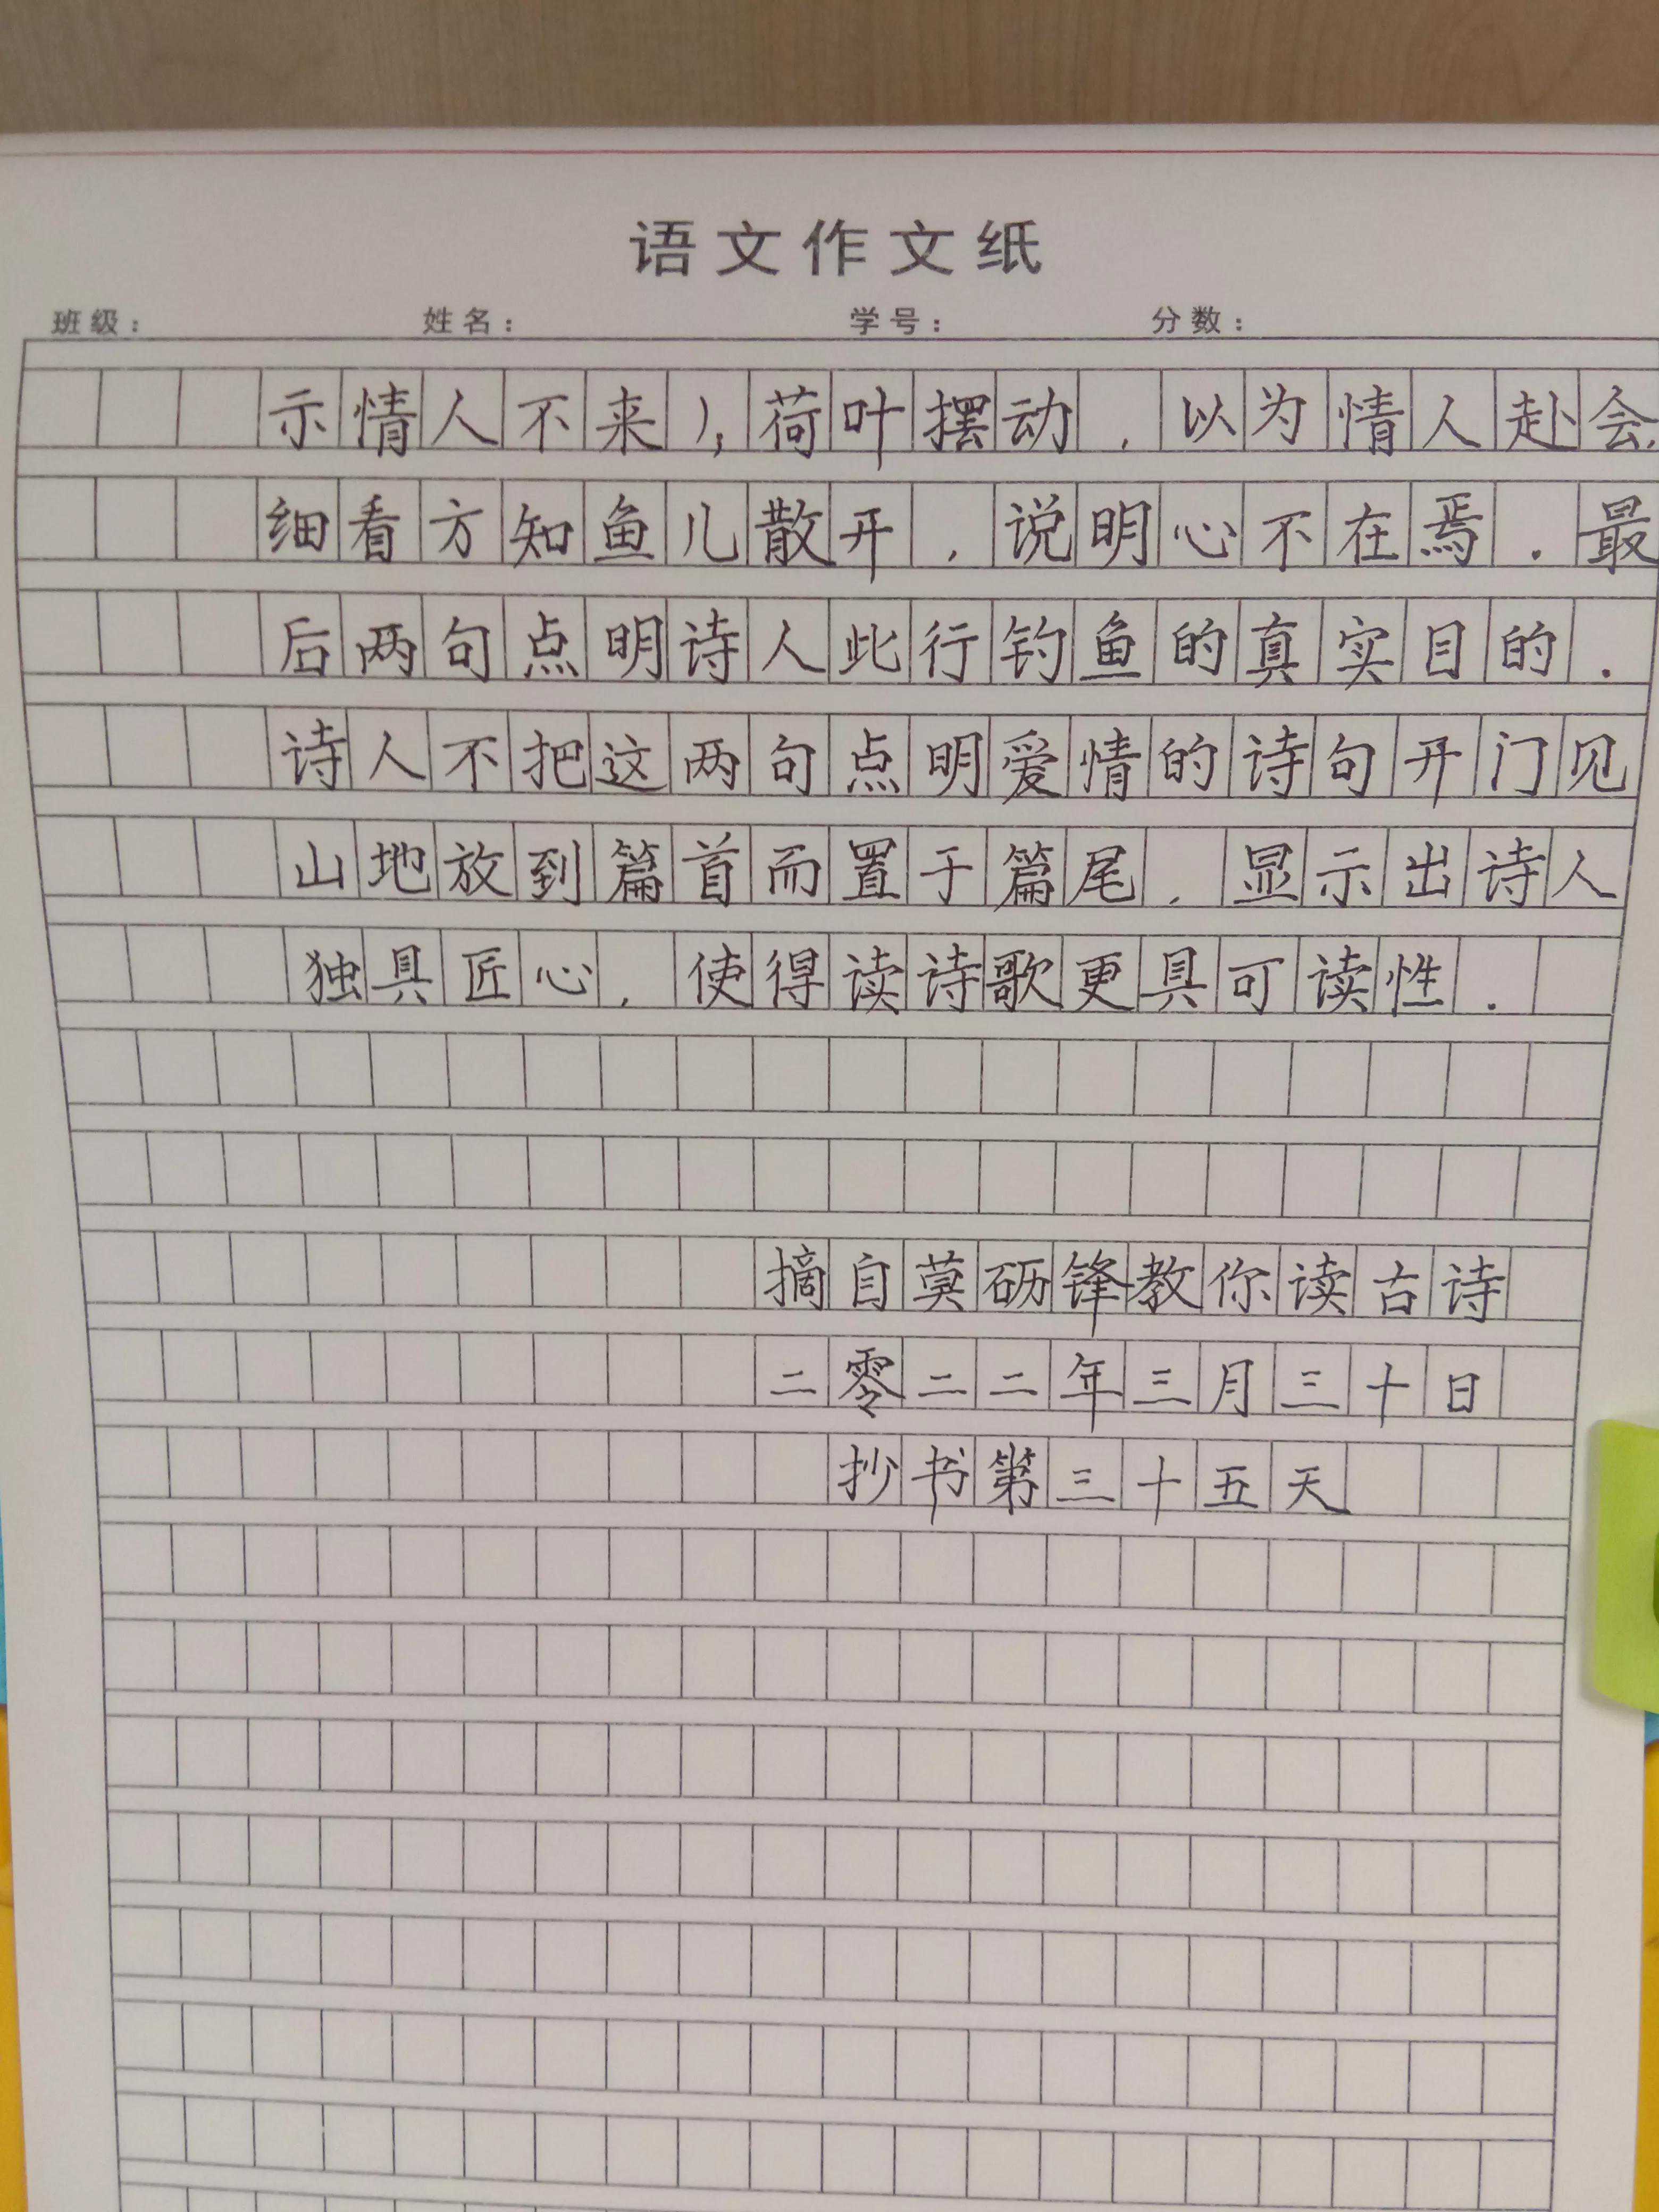 语文作文纸
班级： 姓名： 学号： 分数：
示情人不来），荷叶摆动，以为情人赴会，
细看方知鱼儿散开，说明心不在焉．最
后两句点明诗人此行钓鱼的真实目的．
诗人不把这两句点明爱情的诗句开门见
山地放到篇首而置于篇尾，显示出诗人
独具匠心，使得读诗歌更具可读性．
摘自莫砺锋教你读古诗
二零二二年三月三十日
抄书第三十五天